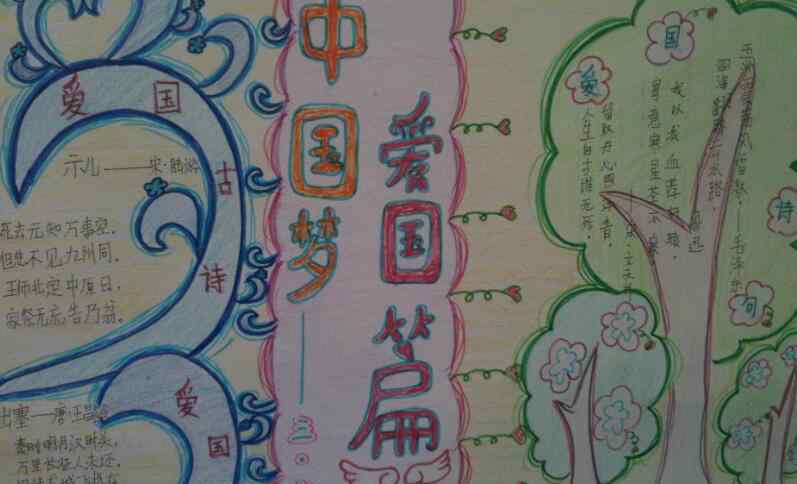 爱国古诗
示儿——宋·陆游
死去元知万事空，
但悲不见九州同。
王师北定中原日，
家祭无忘告乃翁。
爱国
出塞——唐·王昌
秦时明月汉时关，
万里长征人未还。
中国梦——三·
爱国篇
爱国诗句
——毛泽东
我以我血荐轩辕。
鲁迅
寄意寒星荃不察，
留取丹心照汗青。
·文天
人生自古谁无死，